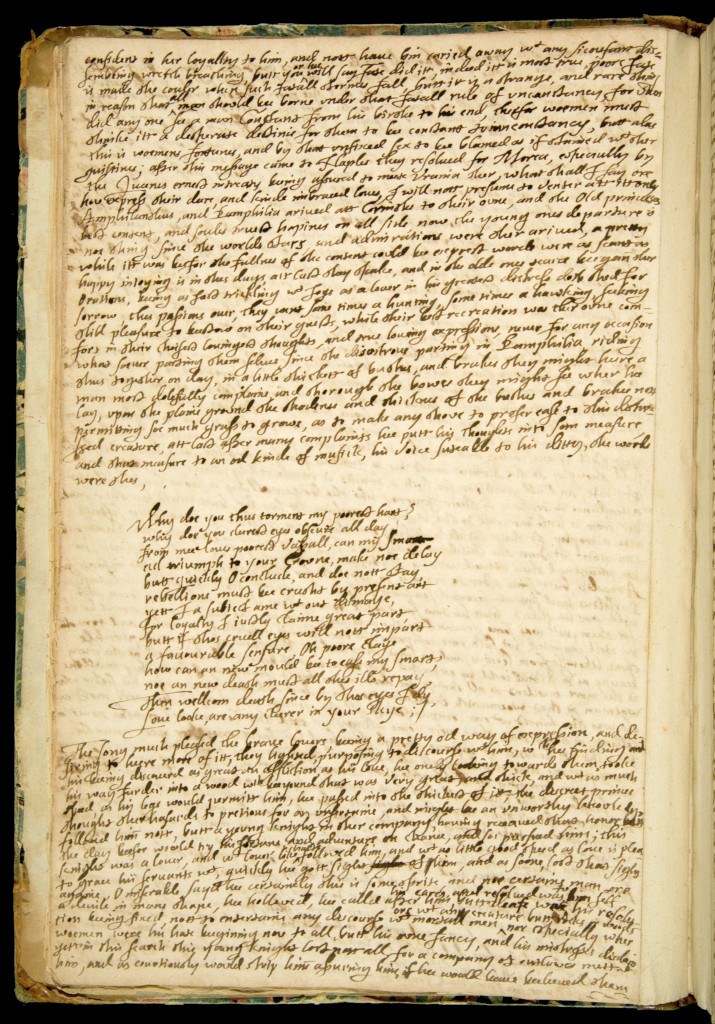 confident in her loyallty to him, and nott have bin caried away wt any
sembling wreth breathing, butt you will say fate did itt, indeed itt is most true, poore fate
is made the couler when such fatall stormes fall, butt itt is a strange, and rare thing
in reason that all men should bee borne under that fatall rule of unconstancy, for when
did any one see a man constant from his birthe to his end, therfor woemen must
thinke itt a desperate destinie for them to bee constant to inconstancy, butt alas
this is woemens fortunes, and by that unfixed sex to bee blamed as if stained wt ther
after this message came to Naples they resolved for Morea, especially by
the Queenes ernest intreaty being assured to meete Urania ther, what shall I say or
how express their dere, and kinde imbraced loves, I will nott presume to venter att itt only
Amphilanthus, and Pamphilia arived att Corinthe to their owne, and the Old princes
best content, and soules truest hapines on all side now the young ones departure is
nothing since the worlds stars, and admirations were ther arrived, a pretty
while itt was beefor the fullnes of the content could bee exprest words were as scant as
happy injoying is in thes days, att last they spake, and in the olde ones teares beegan ther
Orations, being as fast trickling wt joye as a lover in his greatest distress doth shed for
sorrow, thes passions over, they went some times a hunting, some times a hawking, seeking
still pleasure to beestow on their guests, while their best recreation was ther owne com-
fort in their chifest lovingest thoughts, and true loving expressions, never for any occasion
what soever parting them selves since the disastrous parting in Pamphilia, riding
thus together on day, in a little thickett of bushes, and brakes they might heere a
man most dolefully complaine, and thorough the bowes they might see wher hee
lay, upon the plaine ground the shadines and thicknes of the bushes and brakes nott
permitting soe much grass to growe, as to make any shove to profer ease to this distre-
ssed creature, att last after many complaints hee putt his thoughts into som measure
and that measure to an od kinde of musick, his voice sutable to his ditty, the words
were thes,
Why doe you thus torment my poorest hart?
why doe you clearest eyes obscure all day
from mee loves poorest Vassall, can my smart
ad triumph to your Crowne, make noe delay
butt quickly O conclude, and doe nott stay
rebellions must bee crusht by present art
yett I a subject ame wt out dismaye,
for loyalty I justly claime great part,
butt if thes cruell eyes will nott impart
a favourable sensure, Oh poore claye
how can an new mould bee to ease my smart,
noe an new death must all thes ills repay,
Then wellcom death since by thos eyes I dy,
Love looke, are any clearer in your skye;
The song much pleased the brave lovers being a pretty od way of expression, and de-
siring to heere more of itt, they lighted, purposing to discourse wt him, wch hee finding and
his being discoverd as great an affliction, as his love, hee once looking towards them, tooke
his way farder into a wood wch beeyound that was very great, and thick, and wt as much
speed as his legs would permitt him, hee passed into the thickest of itt, the discreet prince
thought ther hasards to pretious for an unknowne, and might bee an unworthy
followed him nott, butt a young knight in ther company having received that honor butt
the day beefor would try his fortune and adventure on chance, and soe pursued him; this
knight was a lover, and wt lover like followed him, and wt as little good speed as love is pleased
to grace his servants wt, quickly hee gott sight of him, and as some, lost that sight
againe, O miserable, sayd hee certainly this is some sprite, and noe certaine man, ore
a devile in mans shape, hee hollowed, hee called after him butt
tion being fixed, nott to entertaine any discourse wt mortall men, nor especially wher
woemen were his hate beeginning now to all, butt his owne fancy, and his mistrises disdaine
yett in this search this young knight lost nott all, for a company of outlawes mett wt
him, and as couriously would stay him assuring him, if hee would have beeleeved them